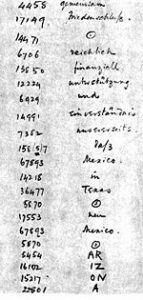 4458 gemeinsam
17149 Friedenschluß.
14471 ⊙
6706 reichlich
13850 finanziell
12224 unterstützung
6929 und
14991 einverständnis
7382 unsererseits.
15857 daß
67893 Mexico.
14218 in
36477 Texas
5870 ⊙
17553 neu
67893 Mexico.
5870 ⊙
5454 AR
16102 IZ
15217 ON
22801 A